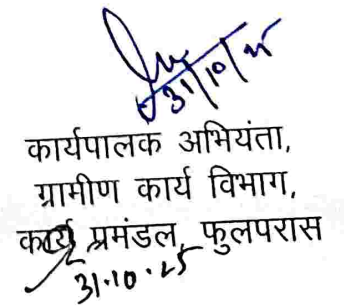 31/10/25
कार्यपालक अभियंता,
ग्रामीण कार्य विभाग,
कार्य प्रमंडल, फुलपरास
31.10.25